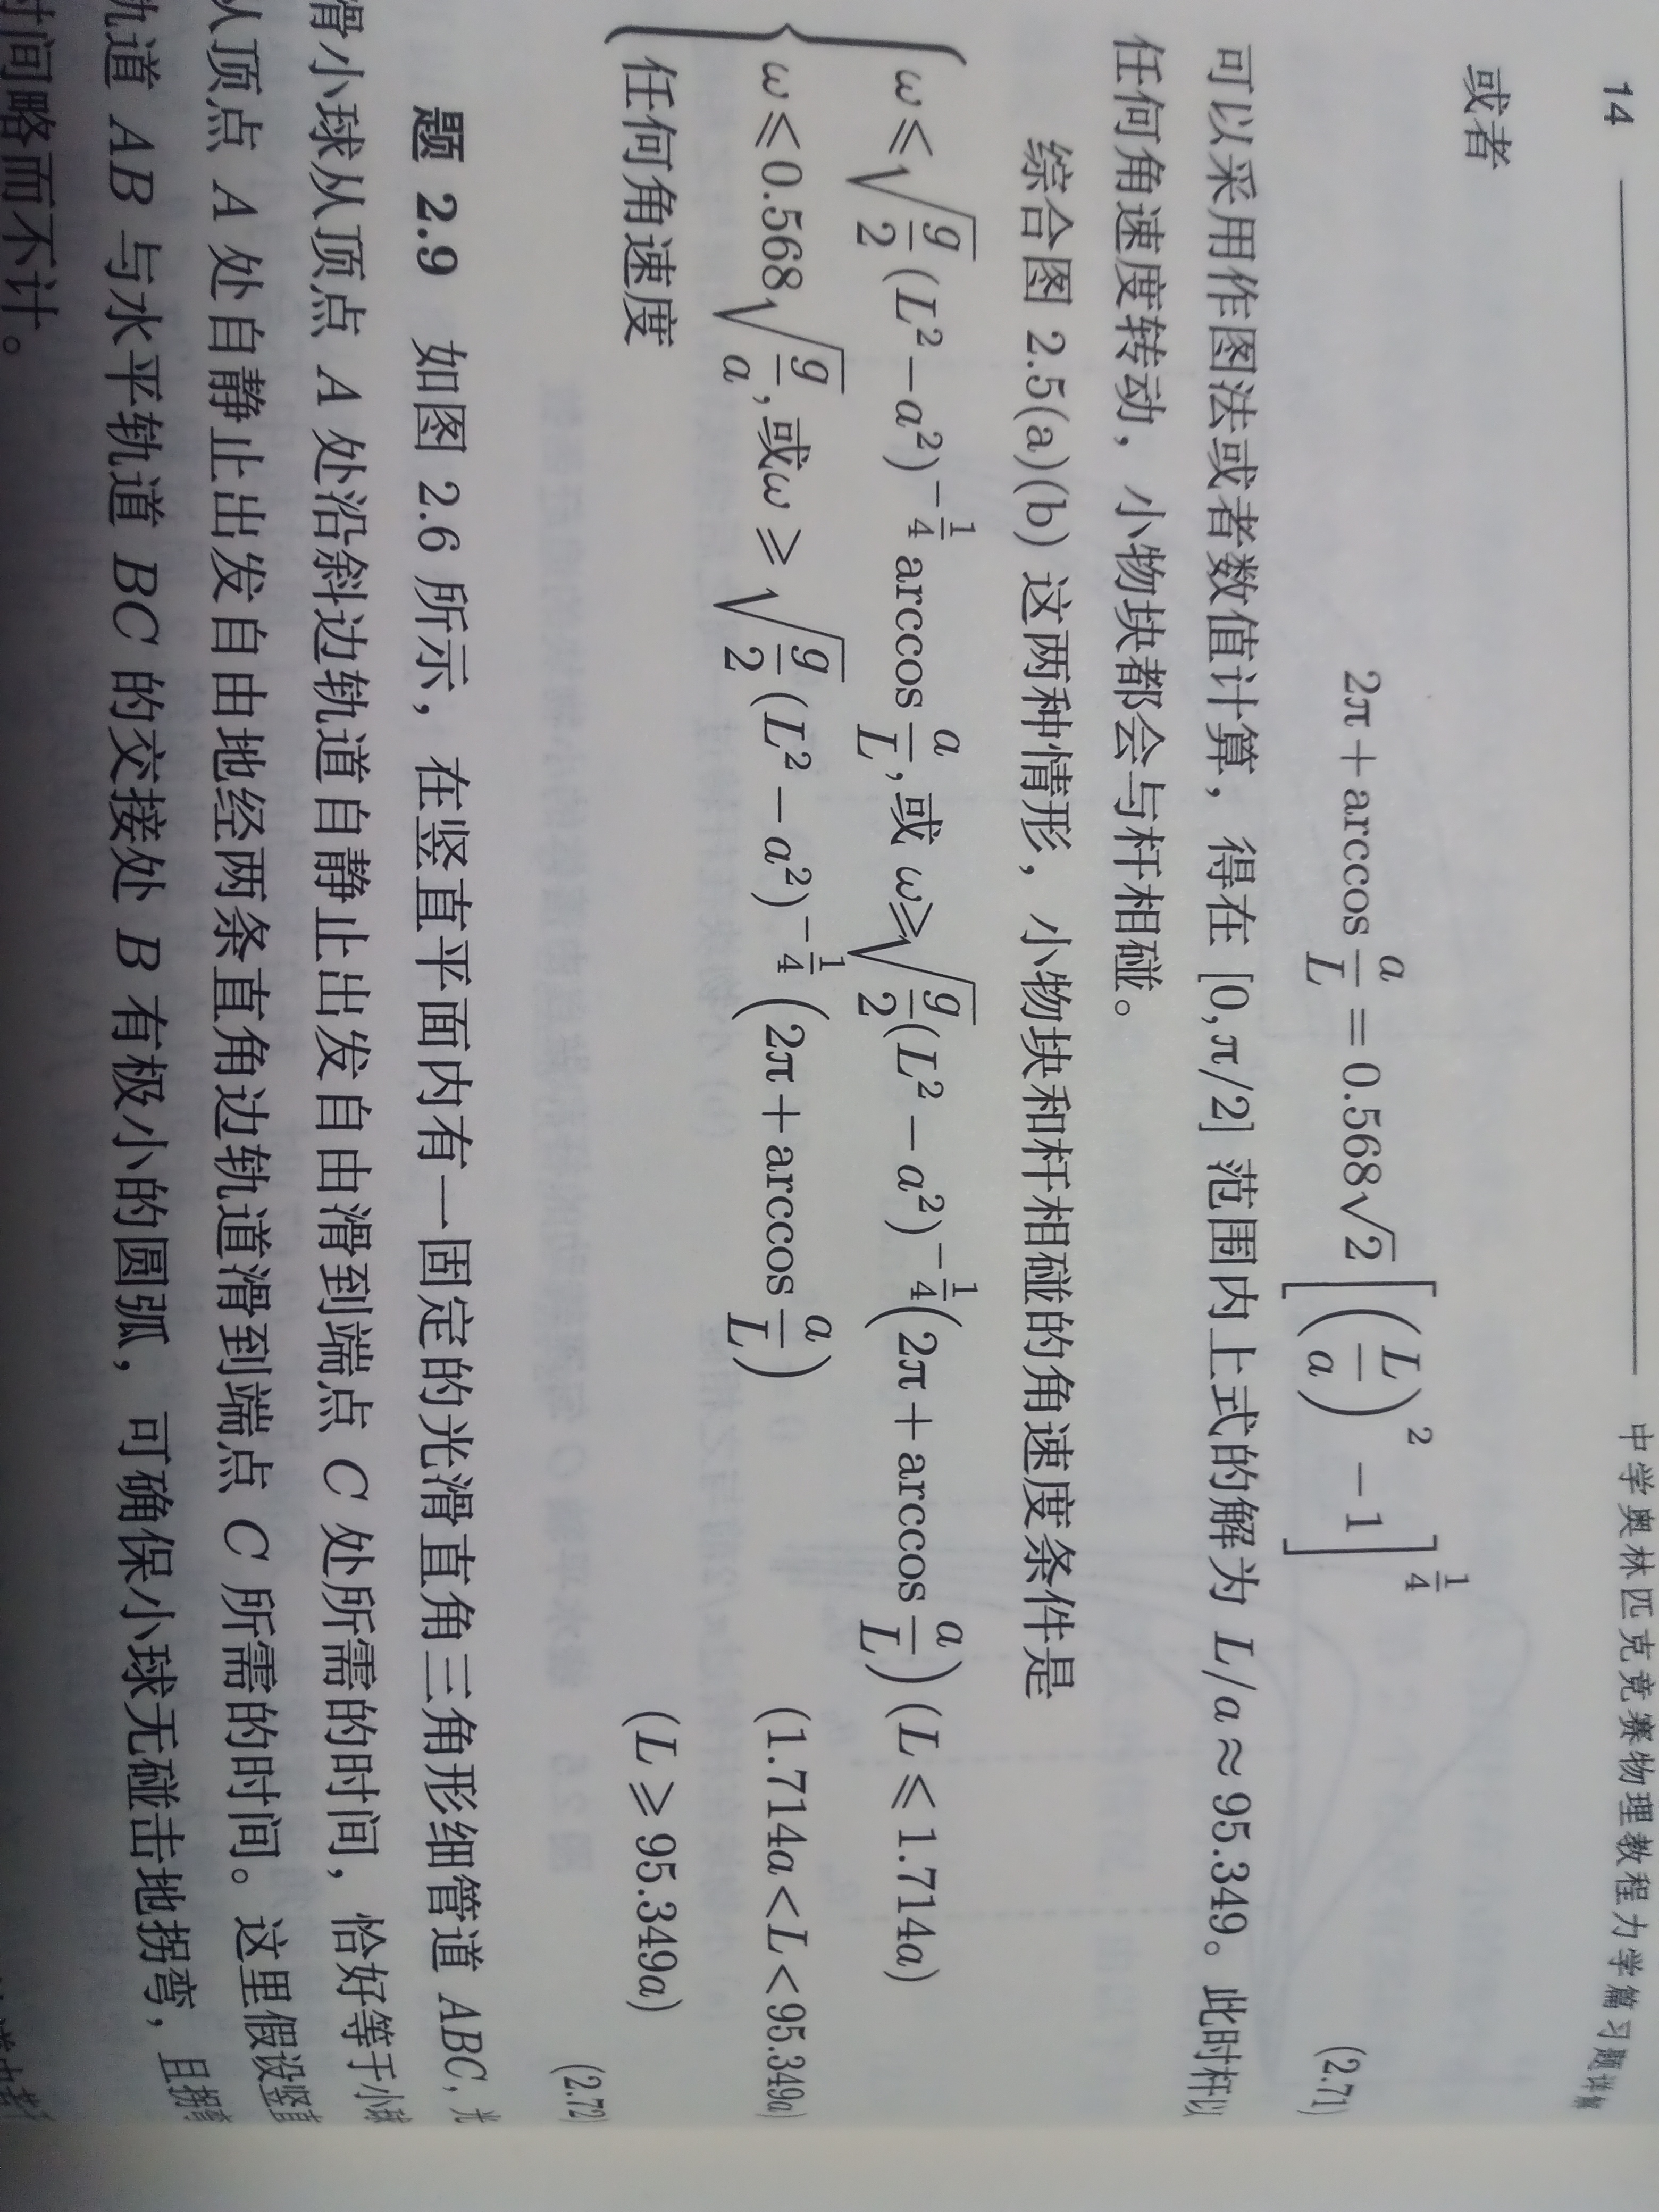 14 中学奥林匹克竞赛物理教程力学篇习题详解
或者
2π+arccos\frac{a}{L}=0.568\sqrt{2}\left[\left(\frac{L}{a}\right)^2-1\right]^{\frac{1}{4}} (2.71)
可以采用作图法或者数值计算，得在 [0,π/2] 范围内上式的解为 L/a≈95.349。此时杆以
任何角速度转动，小物块都会与杆相碰。
综合图 2.5(a)(b) 这两种情形，小物块和杆相碰的角速度条件是
ω⩽\sqrt{\frac{g}{2}}(L^2-a^2)^{-\frac{1}{4}}arccos\frac{a}{L},或 ω⩾\sqrt{\frac{g}{2}}(L^2-a^2)^{-\frac{1}{4}}\left(2π+arccos\frac{a}{L}\right) (L⩽1.714a)
ω⩽0.568\sqrt{\frac{g}{a}},或ω⩾\sqrt{\frac{g}{2}}(L^2-a^2)^{-\frac{1}{4}}\left(2π+arccos\frac{a}{L}\right) (1.714a<L<95.349a)
任何角速度 (L⩾95.349a)
(2.72)
题 2.9 如图 2.6 所示，在竖直平面内有一固定的光滑直角三角形细管道 ABC，光
滑小球从顶点 A 处沿斜边轨道自静止出发自由滑到端点 C 处所需的时间，恰好等于小球
从顶点 A 处自静止出发自由地经两条直角边轨道滑到端点 C 所需的时间。这里假设竖直
轨道 AB 与水平轨道 BC 的交接处 B 有极小的圆弧，可确保小球无碰击地拐弯，且拐弯
时间略而不计。